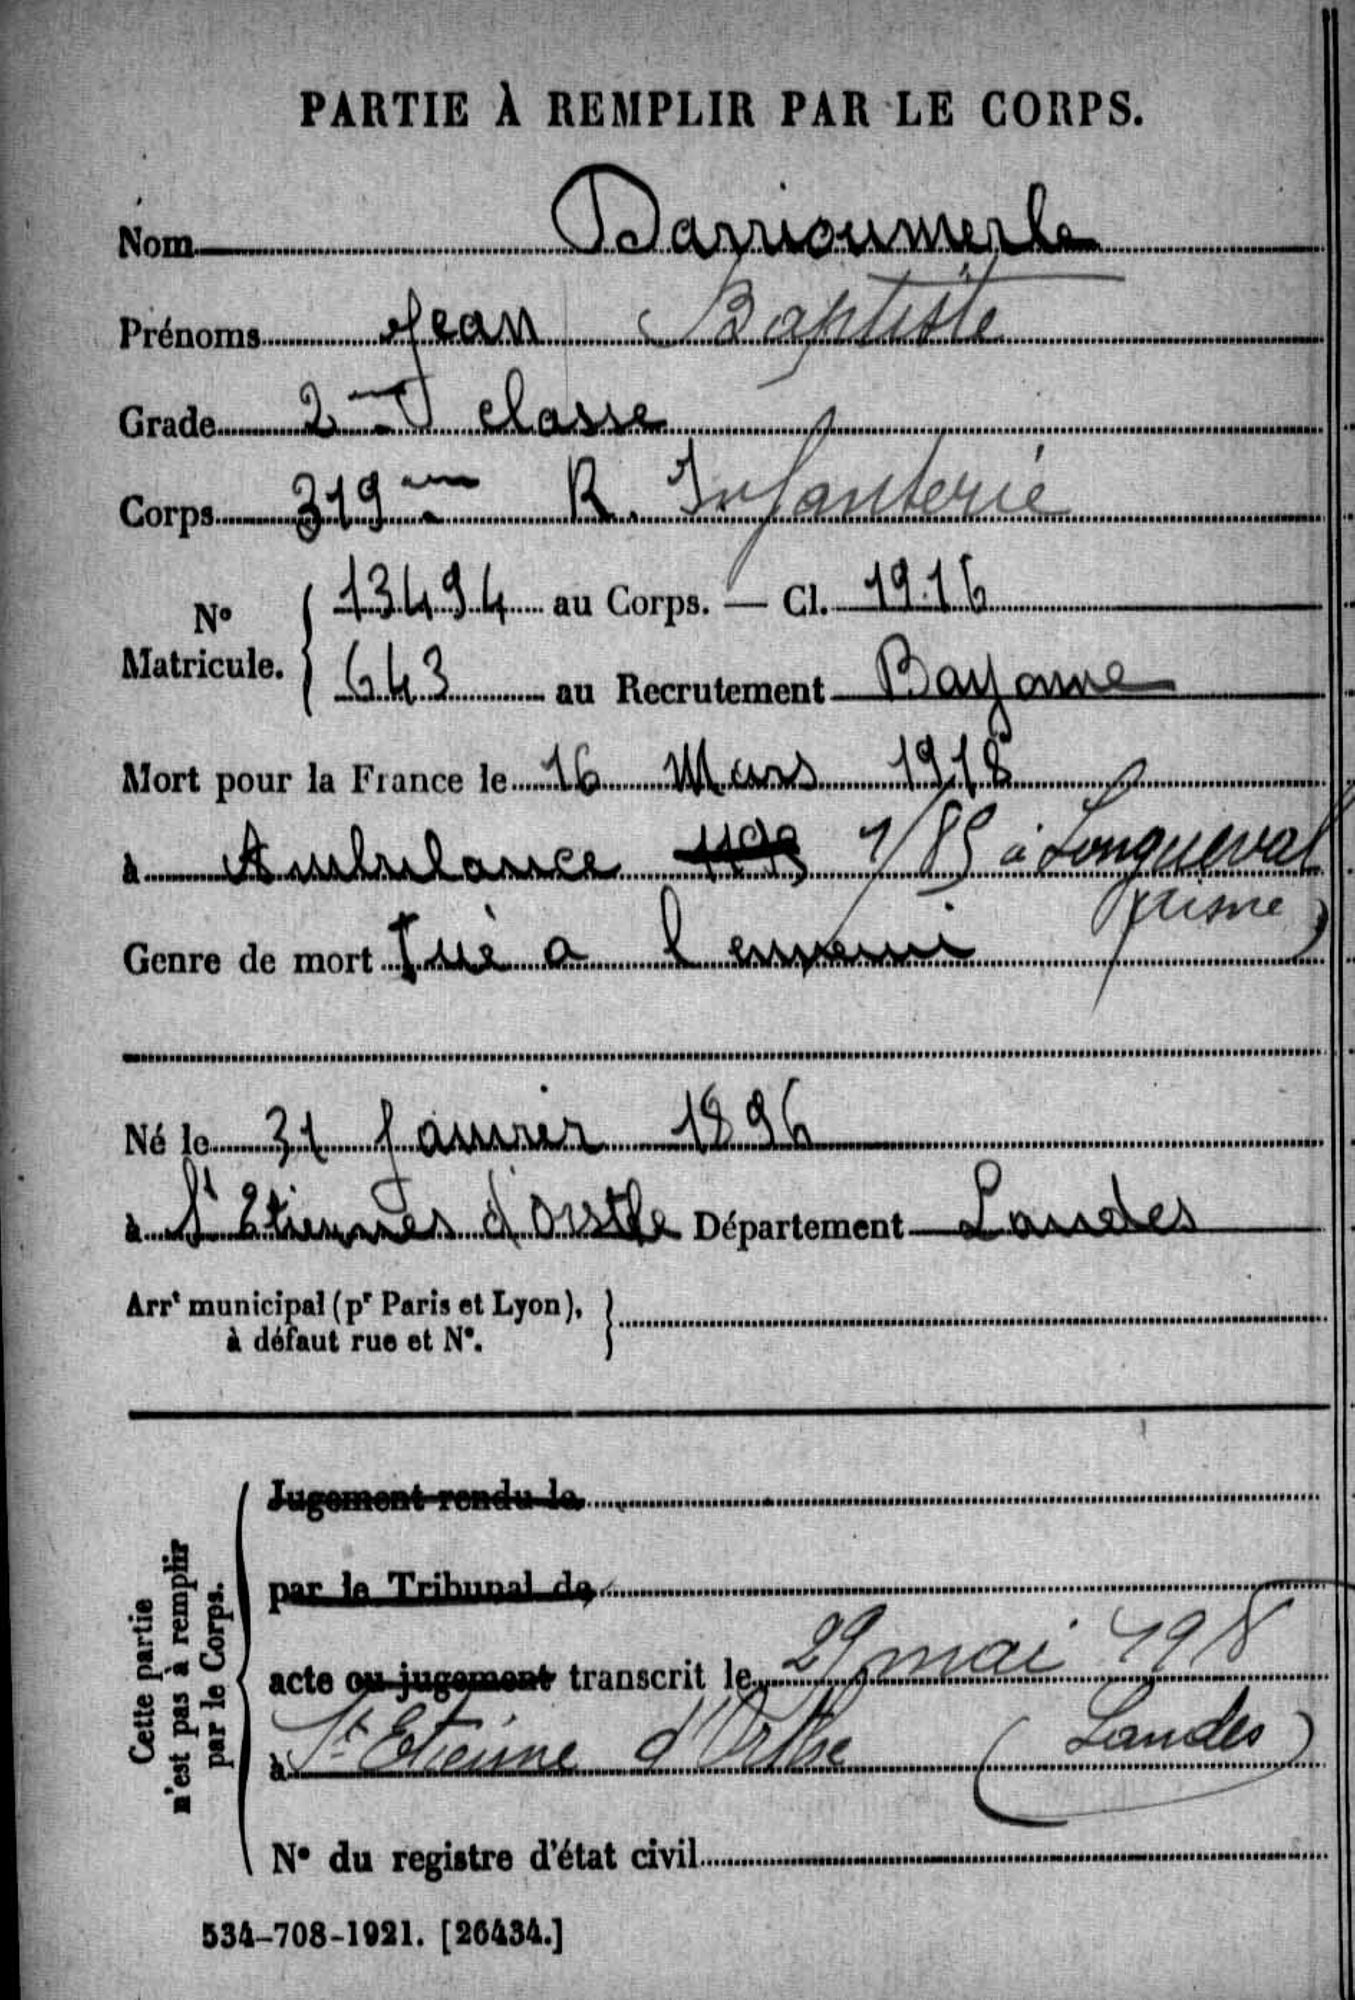 PARTIE À REMPLIR PAR LE CORPS.
Nom Darrioumerle
Prénoms Jean Baptiste
Grade 2me classe
Corps 319me R. Infanterie
No Matricule. { 13494 au Corps. — Cl. 1916
643 au Recrutement Bayonne
Mort pour la France le 16 Mars 1918
à Ambulance 1/85 à Longueval
(Aisne)
Genre de mort Tué a l ennemi
Né le 31 Janvier 1896
à St Etiennes d'Orsthe Département Landes
Arrt municipal (pr Paris et Lyon), }
à défaut rue et No.
Cette partie
n'est pas à remplir
par le Corps.
Jugement rendu le
par le Tribunal de
acte ou jugement transcrit le 29 mai 1918
à St Etienne d'Orthe (Landes)
No du registre d'état civil
534-708-1921. [26434.]